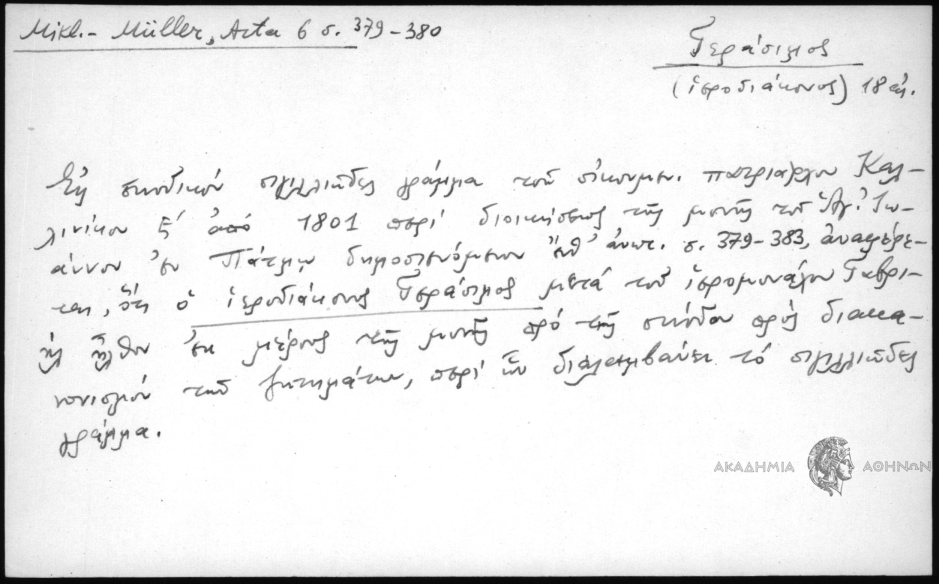 Mikl.- Müller, Acta 6 σ. 379-380
Γεράσιμος
(ἱεροδιάκονος) 18 αἰ.
Εἰς συνοδικόν σιγιλλιῶδες γράμμα τοῦ οἰκουμεν. πατριάρχου Καλ-
λινίκου Ε΄ ἀπό 1801 περί διοικήσεως τῆς μονῆς τοῦ Ἁγ. Ἰω-
άννου ἐν Πάτμῳ δημοσιευόμενον ἔνθ' ἀνωτ. σ. 379-383, ἀναφέρε-
ται, ὅτι ὁ ἱεροδιάκονος Γεράσιμος μετά τοῦ ἱερομονάχου Γαβρι-
ήλ ἦλθον ἐκ μέρους τῆς μονῆς πρό τῆς συνόδου πρός διακα-
νονισμόν τῶν ζητημάτων, περί ὧν διαλαμβάνει τό σιγιλλιῶδες
γράμμα.
ΑΚΑΔΗΜΙΑ ΑΘΗΝΩΝ